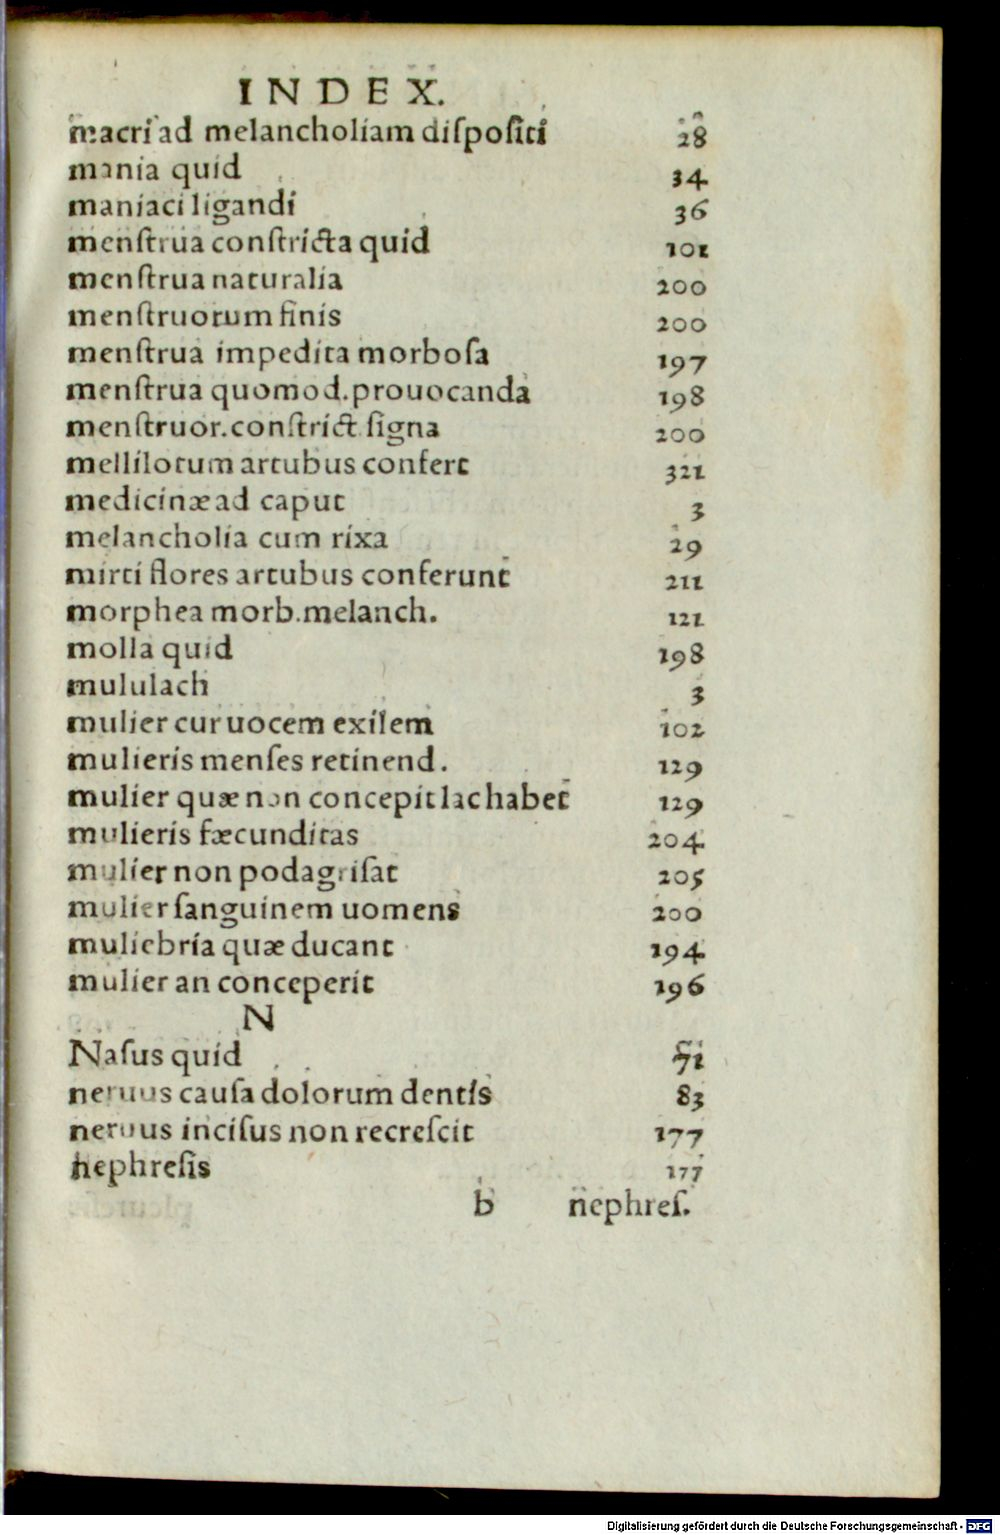 INDEX.
macri ad melancholiam diſpoſiti 28
mania quid 34
maniaci ligandi 36
menſtrua conſtricta quid 101
menſtrua naturalia 200
menſtruorum finis 200
menſtrua impedita morboſa 197
menſtrua quomod.prouocanda 198
menſtruor.conſtrict.ſigna 200
mellilotum artubus confert 321
medicinæ ad caput 3
melancholia cum rixa 29
mirti flores artubus conferunt 211
morphea morb.melanch. 121
molla quid 198
mululach 3
mulier cur uocem exilem 102
mulieris menſes retinend. 129
mulier quæ non concepit lac habet 129
mulieris fæcunditas 204
mulier non podagriſat 205
mulier ſanguinem uomens 200
muliebria quæ ducant 194
mulier an conceperit 196
N
Naſus quid 71
neruus cauſa dolorum dentis 83
neruus inciſus non recreſcit 177
nephreſis 177
b nephreſ.
Digitalisierung gefördert durch die Deutsche Forschungsgemeinschaft - DFG